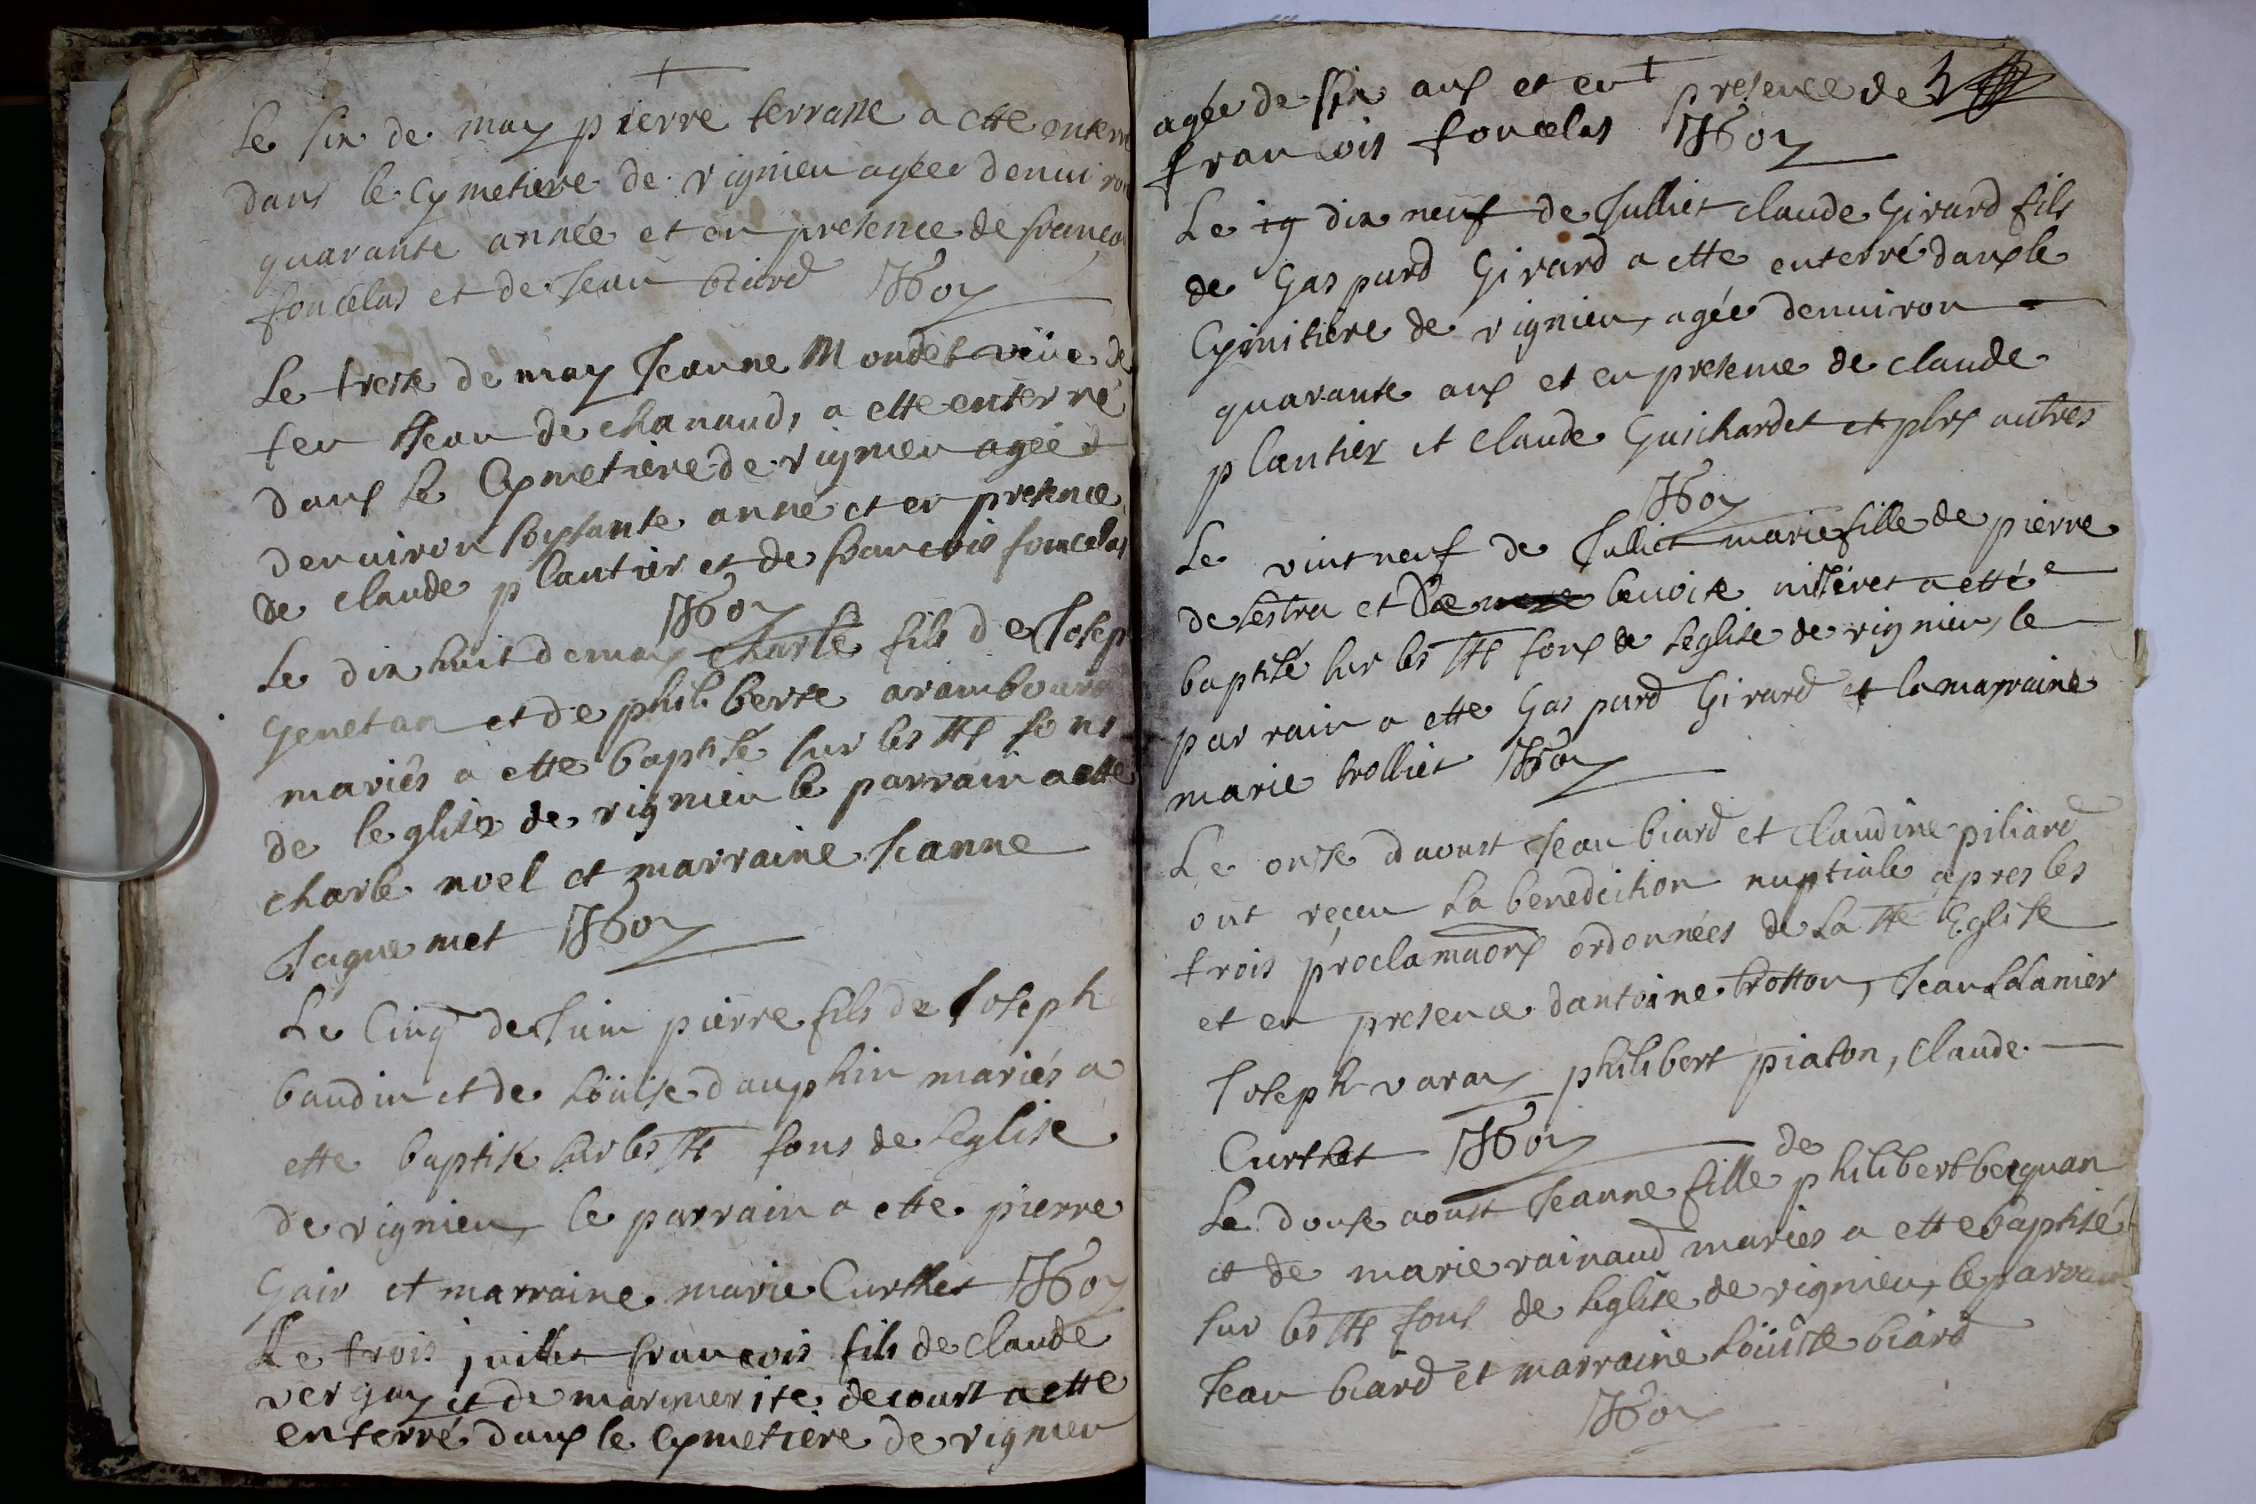 Le six de may pierre terrasse a ette enterr
dans le cymetiere de vignieu agée denuiron
quarante année et en presence de francois
foucelas et de Jean biard
Le tresse de may Jeanne Mondet veüe de
feu Jean de chanaud, a ette enterré
dans le Cymetiere de vignieu agée d
denuiron soyssante anné et en presence
de claude plantier et de francois foucelas
Le dix huit de may charle fils de Josep
genetan et de philiberte arambourg
mariés a ette baptisé sur les sts fons
de leglise de vignieu le parrain a ette
charle noel et marraine Jeanne
Jaguemet
Le Cinq de Juin pierre fils de Joseph
baudin et de Loüise dauphin mariés a
ette baptisé sur les sts fons de leglise
de vignieu, le parrain a ette pierre
Gair et marraine marie Curthet
Le trois juillet francois fils de claude
verguy et de marguerite decourt a ette
enterré dans le cymetiere de vignieu
agée de six ans et en presence de
francois foucelas
Le 19 dix neuf de Julliet claude Girard fils
de Gaspard Girard a ette enterré dans le
Cymitiere de vignieu, agée denuiron
quarante ans et en presence de claude
plantier et claude Guichardet et plrs autres
Le vint neuf de Julliet marie fille de pierre
de lestra et de benoite miseret a etté
baptisé sur les sts fons de leglise de vignieu, le
parrain a ette Gaspard Girard et la marraine
marie trolliet
Le onse daoust Jean biard et claudine piliard
ont reçeu la benedcition nuptiale apres les
trois proclamaons ordonnées de la ste Eglise
et en presence dantoine trotton, Jean Lanier
Joseph varay philibert piaton, claude
Curthet
Le douse aoust Jeanne fille de philibert bequan
et de marie rainaud mariés a ette baptisé
sur les sts fons de leglise de vignieu, le parrain
Jean biard et marraine Loüisse biard